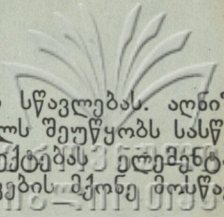 სწავლებას. აღნი
ლს შეუწყობს სასწ
ქტებას ელემენტ
ვების მქონე მოსწა